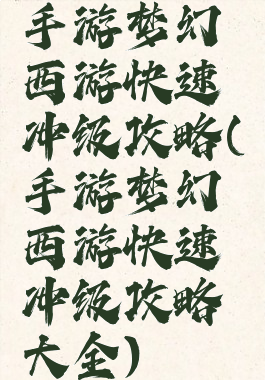 手游梦幻
西游快速
冲级攻略(
手游梦幻
西游快速
冲级攻略
大全)